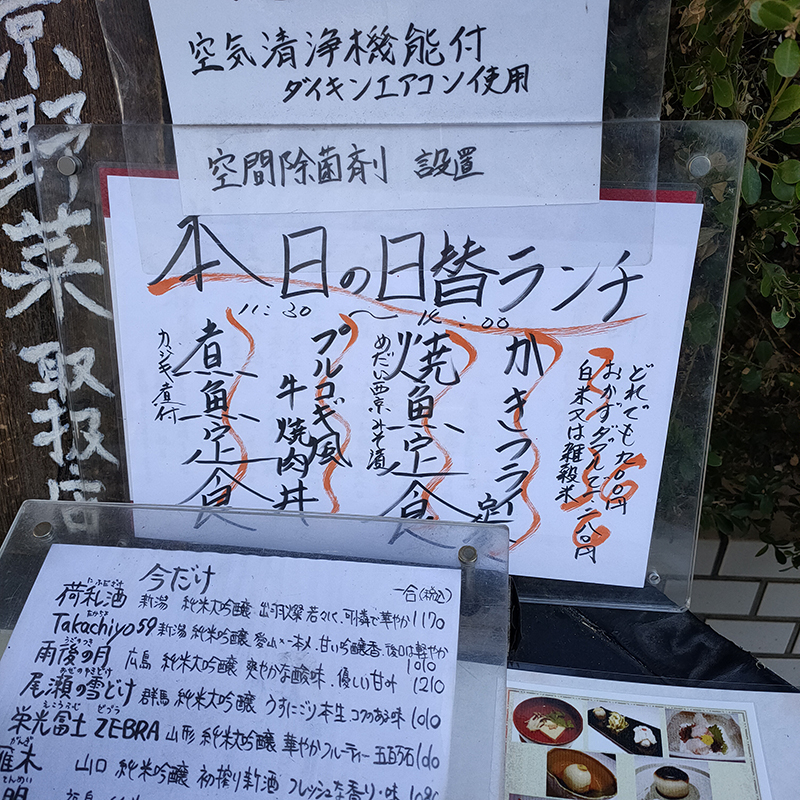 京野菜取扱店
空気清浄機能付
ダイキンエアコン使用
空間除菌剤 設置
本日の日替ランチ
11:30〜14:00
どれでも九〇〇円
おかずダブルで一二八〇円
白米又は雑穀米
かきフライ定食
焼魚定食
めだい西京みそ漬
プルコギ風
牛焼肉丼
煮魚定食
カジキ煮付
今だけ
一合(税込)
荷札酒 新潟 純米大吟醸 出羽燦 若々しく、可憐で華やか 1170
Takachiyo59 新潟 純米吟醸 愛山×一本〆 甘い吟醸香、後口は軽やか 1010
雨後の月 広島 純米大吟醸 爽やかな酸味、優しい甘味 1210
尾瀬の雪どけ 群馬 純米大吟醸 うすにごり本生 コクのある味 1010
栄光冨士 ZEBRA 山形 純米大吟醸 華やかフルーティー 五百万石 1010
雁木 山口 純米吟醸 初搾り新酒 フレッシュな香り・味